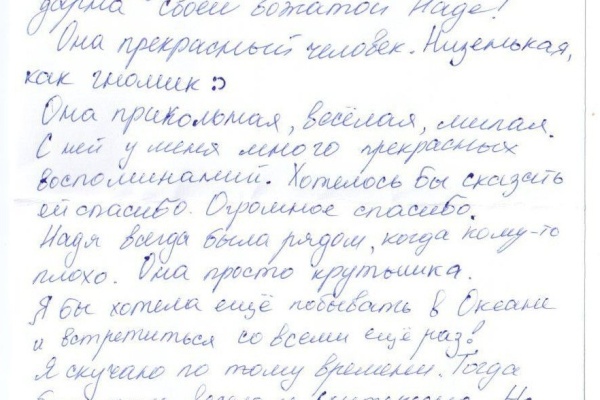 дарна своей вожатой Наде!
Она прекрасный человек. Низенькая,
как гномик :)
Она прикольная, весёлая, милая.
С ней у меня много прекрасных
воспоминаний. Хотелось бы сказать
ей спасибо. Огромное спасибо.
Надя всегда была рядом, когда кому-то
плохо. Она просто крутышка.
Я бы хотела ещё побывать в Океане
и встретиться со всеми ещё раз!
Я скучаю по тому времени. Тогда